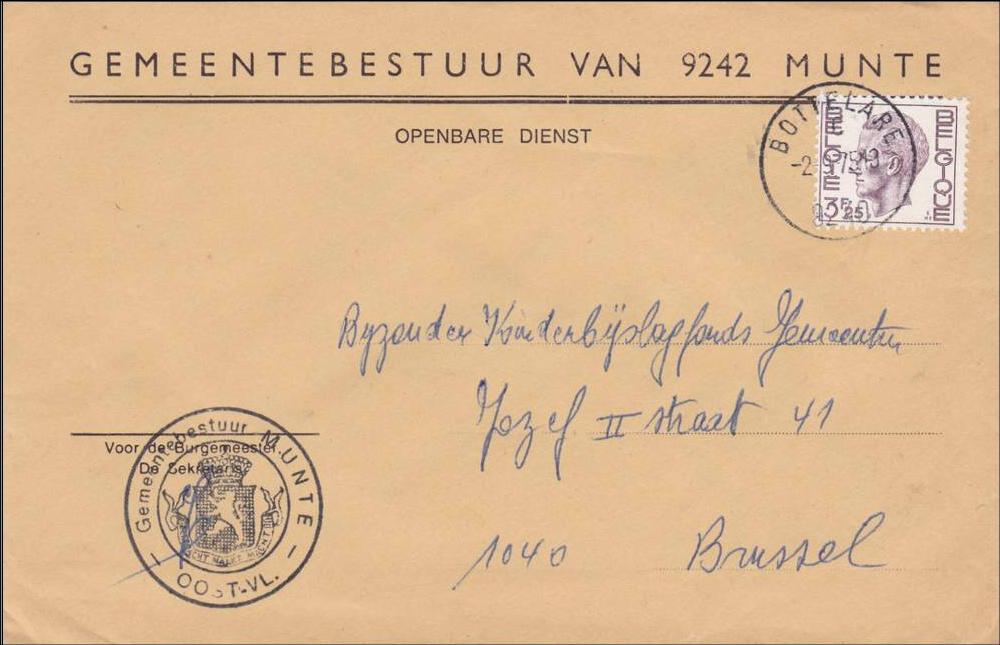 GEMEENTEBESTUUR VAN 9242 MUNTE
OPENBARE DIENST
BOTTELARE
-2-9-75
BELGIE
BELGIQUE
3F25
Byzonder Kinderbijslagfonds Gemeenten
Jozef II straat 41
1040 Brussel
Voor de Burgemeester,
De Sekretaris,
Gemeentebestuur MUNTE
MAAKT MACHT
OOST-VL.